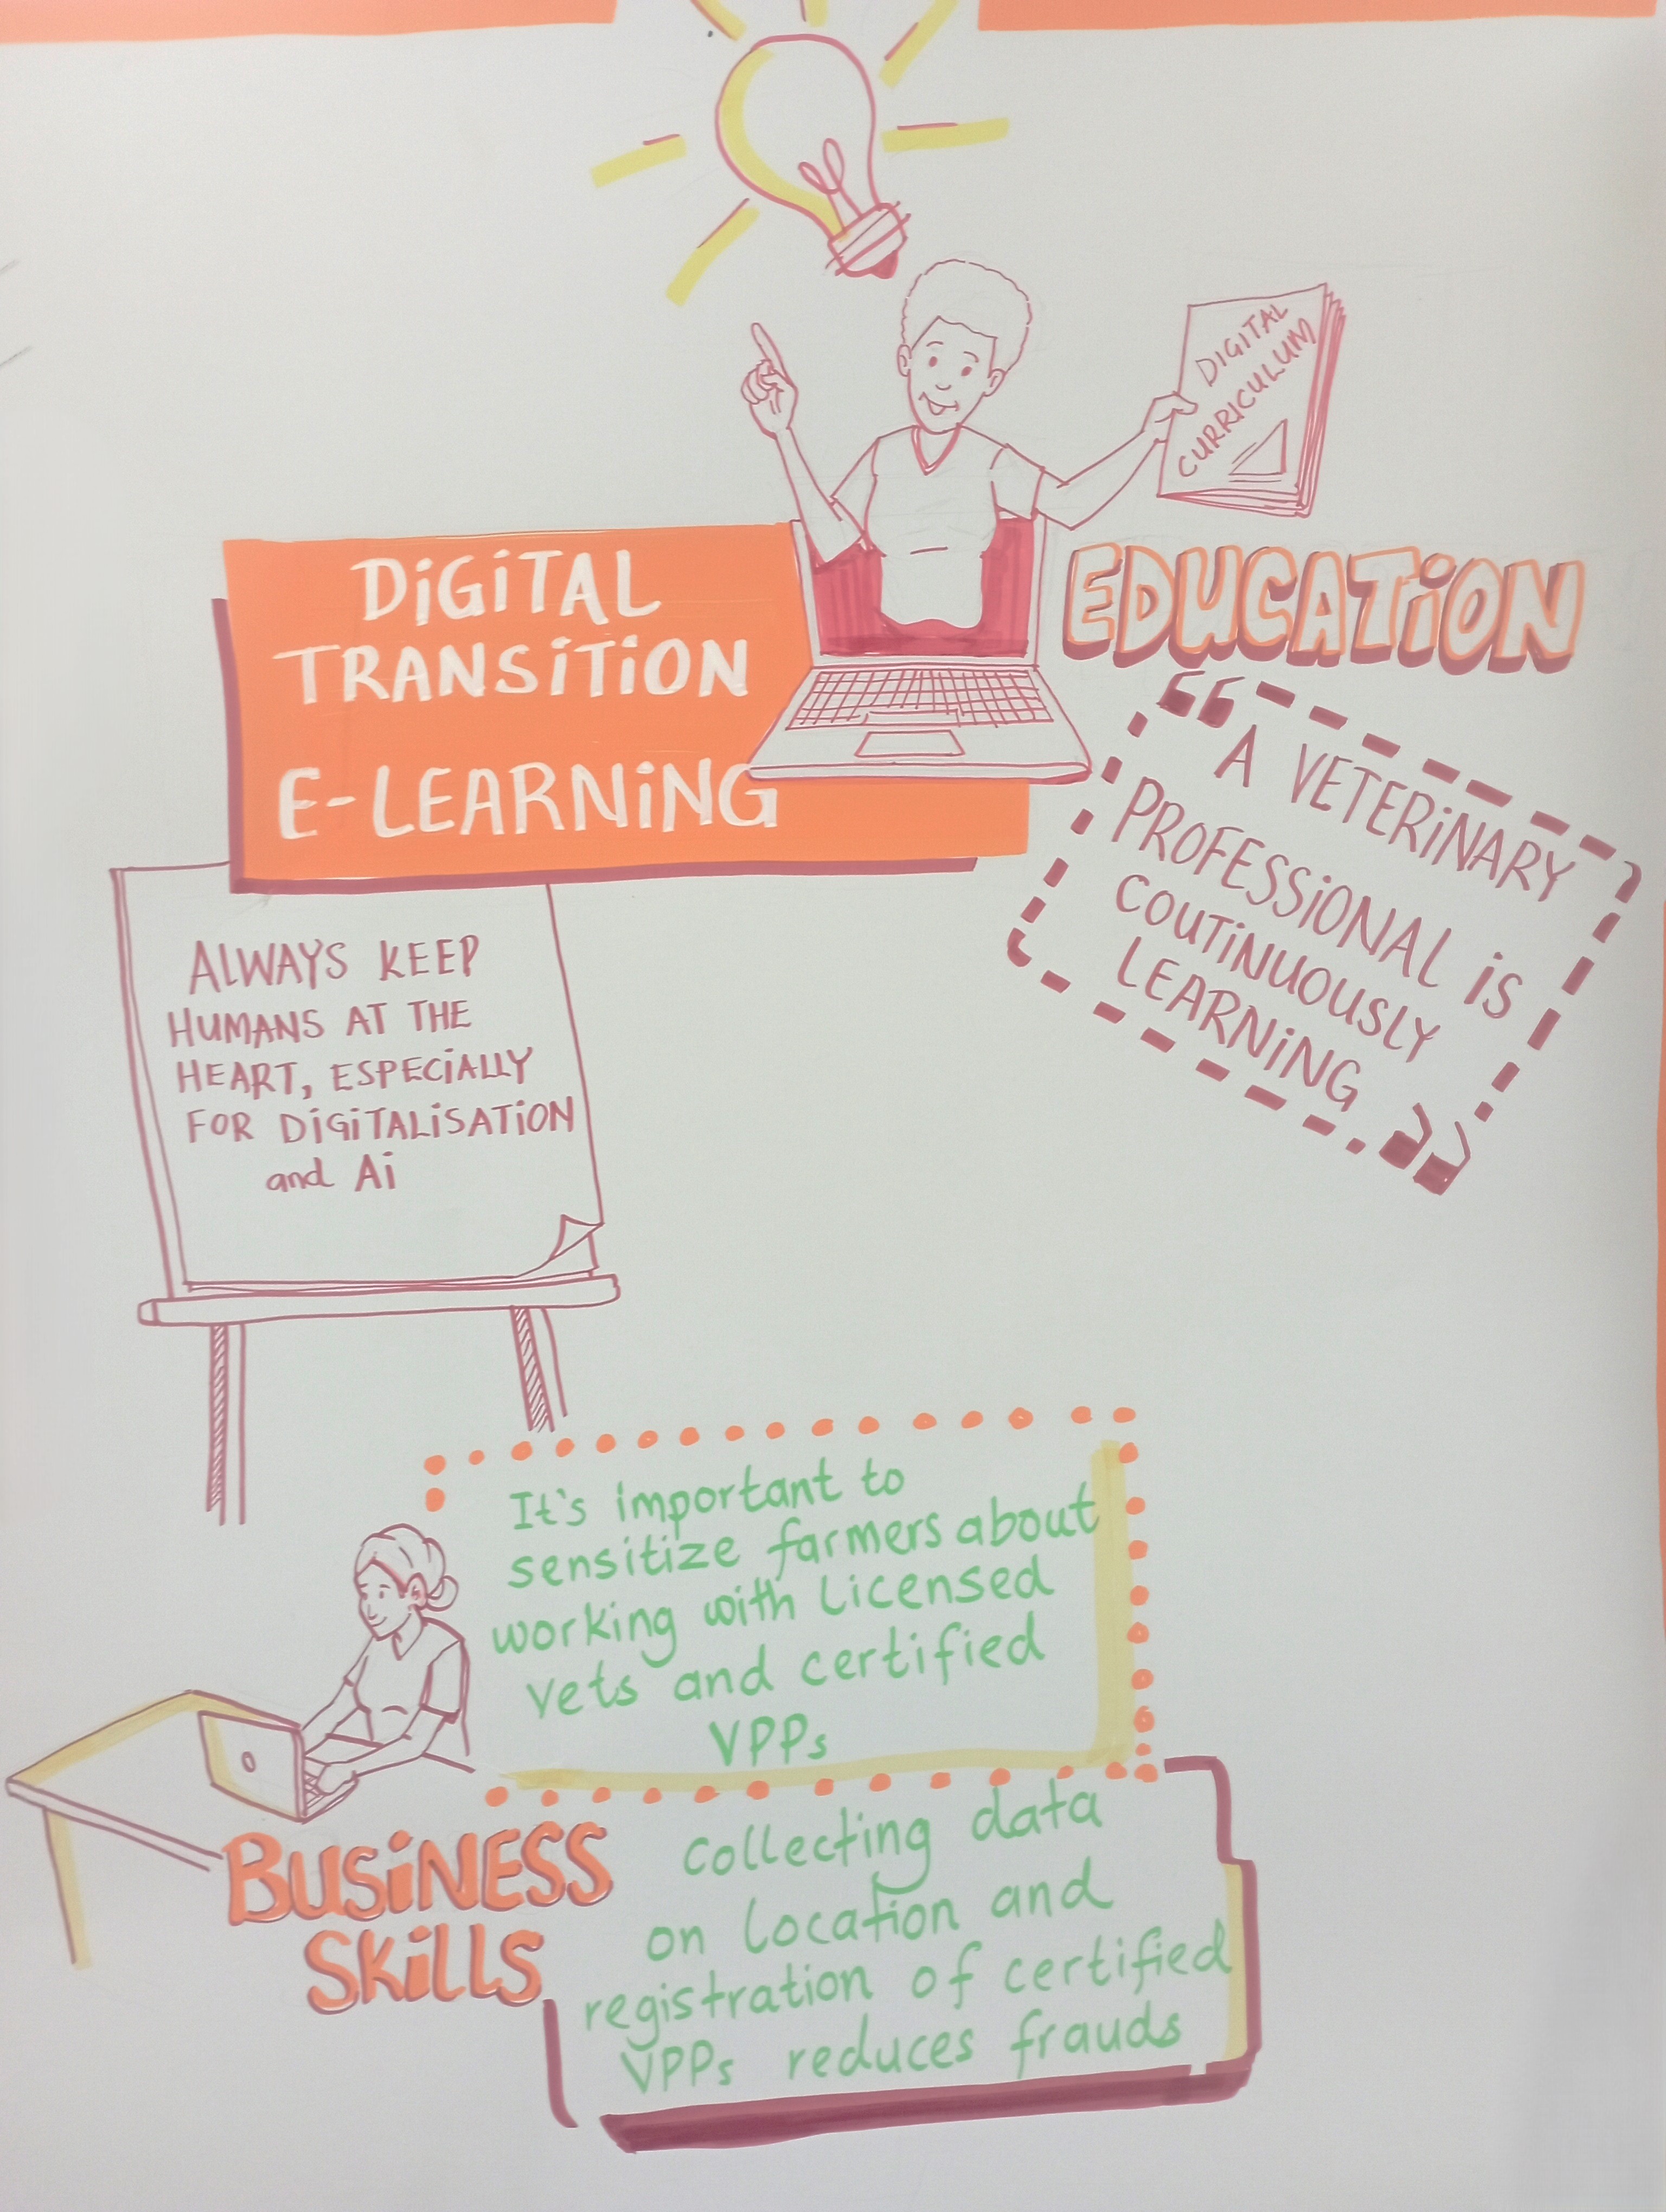 DIGITAL
CURRICULUM
DiGiTAL
TRANSiTiON
E-LEARNiNG
EDUCATiON
“A VETERiNARY
PROFESSiONAL iS
COUTiNUOUSLY
LEARNiNG”
ALWAYS KEEP
HUMANS AT THE
HEART, ESPECiALLY
FOR DiGiTALiSATiON
and Ai
It's important to
sensitize farmers about
working with Licensed
vets and certified
VPPs
BUSiNESS
SKiLLS
collecting data
on location and
registration of certified
VPPs reduces frauds